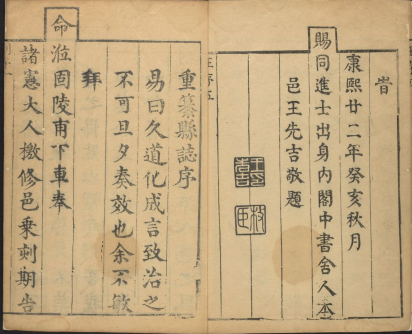 旹
康熙廿二年癸亥秋月
賜同進士出身內閣中書舍人本
邑王先吉敬題
重纂縣誌序
易曰久道化成言致治之
不可旦夕奏效也余不敏
拜
命涖固陵甫下車奉
諸憲大人檄修邑乗刻期告